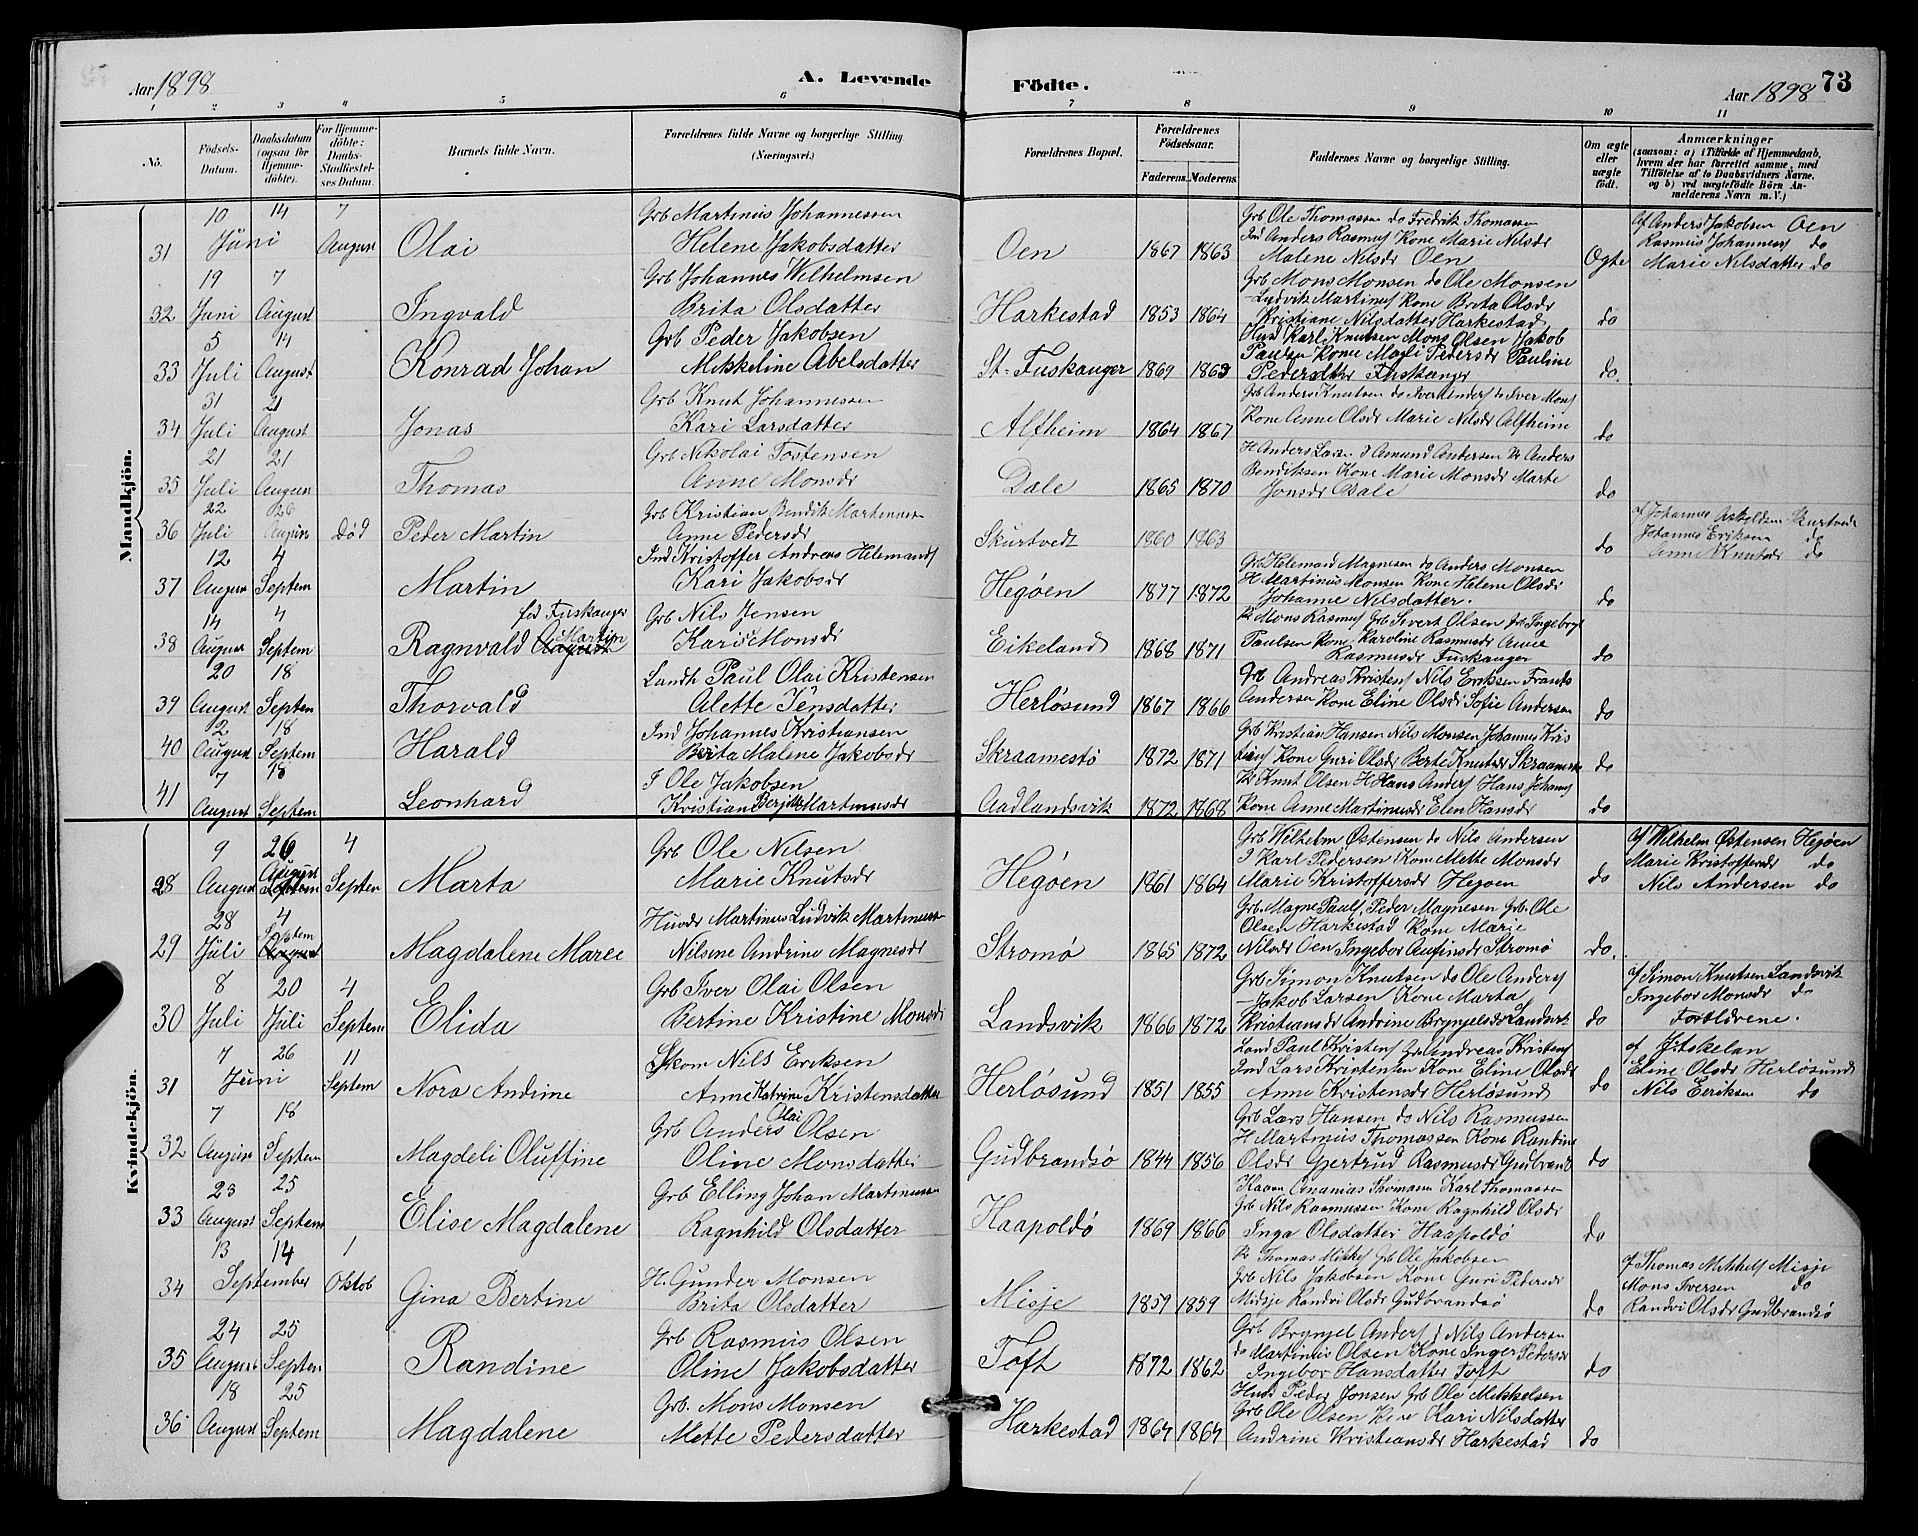 Aar 1898
A. Levende
Födte.
Aar 1898
73
1 2 3 4 5 6 7 8 9 10 11
No.
Födsels-Datum.
Daabsdatum (ogsaa for Hjemme-döbte).
For Hjemme-döbte: Daabs-Stadfæstelses Datum.
Barnets fulde Navn.
Forældrenes fulde Navne og borgerlige Stilling (Næringsvei.)
Forældrenes Bopæl.
Forældrenes Födselsaar.
Faderens. Moderens.
Faddernes Navne og borgerlige Stilling.
Om ægte eller uægte födt.
Anmærkninger
(saasom: a) i Tilfælde af Hjemmedaab, hvem der har forrettet samme, med Tilföielse af to Daabsvidners Navne, og b) ved uægtefödte Börn Anmelderens Navn m. V.)
Mandkjön.
31 10 Juni 14 7 August Olai
Grb Martinus Johannessen
Helene Jakobsdatter
Oen 1867 1863
Grb Ole Thomassen do Fredrik Thomassen
Ind Anders Rasmuss Kone Marie Nilsdr
Malene Nilsdr Oen
Ogte
af Anders Jakobsen Oen
Rasmus Johanness do
Marie Nilsdatter do
32 19 Juni 7 August Ingvald
Grb Johannes Wilhelmsen
Brita Olsdatter
Harkestad 1853 1864
Grb Mons Monsen do Ole Monsen
Ludvik Martinus Kone Brita Olsdr
Kristiane Nilsdatter Harkestad
do
33 5 Juli 14 August Konrad Johan
Grb Peder Jakobsen
Mikkeline Abelsdatter
St. Fuskanger 1869 1863
Husd Karl Knutsen Mons Olsen Jakob
Paulsen Kone Magli Pedersdr Pauline
Pedersdtter Fuskanger
do.
34 31 Juli 21 August Jonas
Grb Knut Johannessen
Kari Larsdatter
Alfheim 1864 1867
Grb Anders Knutsen do Iver Anders to Iver Mons
Kone Anne Olsdr Marie Nilsdr Alfheim
do
35 21 Juli 21 August Thomas
Grb Nikolai Tostensen
Anne Monsdr
Dale 1865 1870
H Anders Larsen J Amund Andersen Anders
Bendiksen Kone Marie Monsdr Marte
Jonsdr Dale
do
36 22 Juli 26 August Död Peder Martin
Grb Kristian Bendik Martinusen
Anne Pedersdr
Skurtvedt 1860 1863
do
af Johannes Skurtvedt
Johannes Eriksen do
Anne Knutsdr do
37 12 August 4 Septem Martin
Ind Kristoffer Andreas Helemands
Kari Jakobsdr
Hegöen 1877 1872
Grb Helemand Magnesen do Anders Monsen
H Martinus Monsen Kone Helene Olsdr
Johanne Nilsdatter.
do
38 14 August 4 Septem Ragnvald Martin
fød Fuskanger
Grb Nils Jensen
Kari Monsdr
Eikeland 1868 1871
Mons Rasmus Grb Sivert Olsen Ingebrigt
Paulsen Kone Karoline Rasmusdr Anne
Rasmusdr Fuskanger
do
39 20 August 18 Septem Thorvald
Landh Paul Olai Kristensen
Alette Jensdatter
Herløsund 1867 1866
Andreas Kristens Nils Eriksen Frants
Andersen Kone Eline Olsdr Sofie Andersen
do
40 12 August 18 Septem Harald
Ind Johannes Kristiansen
Berta Malene Jakobsdr
Skraamestö 1872 1871
Grb Kristian Hansen Nils Monsen Johannes Kris
tians Kone Guri Olsdr Berte Knutsdr Skraamestö
do
41 7 August 18 Septem Leonhard
J Ole Jakobsen
Kristian Berjitte Martinusdr
Aadlandsvik 1872 1868
Knut Olsen H Hans Anders Hans Johans
Kone Anne Martinusdr Elen Hansdr
do
Kvindekjön.
28 9 August 26 August 4 Septem Marta
Grb Ole Nilsen
Marie Knutsdr
Hegöen 1861 1864
Grb Wilhelm Østensen do Nils Andersen
J Karl Pedersen Kone Mette Monsdr
Marie Kristoffersdr Hegøen
do
af Wilhelm Østensen Hegöen
Marie Kristoffersdr do
Nils Andersen do
29 28 Juli 4 Septem Magdalene Maree
Husdr Martinus Ludvik Martinusen
Nilsine Andrine Magnesdr
Stromö 1865 1872
Grb. Magne Pauls, Peder Magnesen Grb. Ole
Olsen Harkestad Kone Marie
Nilsdr Oen Ingebor Anfinsdr Stromö
do.
30 8 Juli 20 Juli 4 Septem Elida
Grb Iver Olai Olsen
Bertine Kristine Monsdr
Landsvik 1866 1872
Grb Simon Knutsen do Ole Anders
Jakob Larsen Kone Marta
Kristiansdr Andrine Brynjelsdr Landsvik
do
af Simon Knutsen Landsvik
Ingebor Monsdr do
Foreldrene.
31 7 Juni 26 11 Septem Nora Andrine
Skom Nils Eriksen
Anne Katrine Kristensdatter
Herlösund 1851 1855
Land Paul Kristens Grb Andreas Kristens
Ind Lars Kristensen Kone Eline Olsdr
Anne Kristensdr Herlösund
do
af
Eline Olsdr Herlösund
Nils Eeriksen do
32 7 August 18 Septem Magdeli Oluffine
Grb Anders Olai Olsen
Oline Monsdatter
Gudbrandsö 1844 1856
Grb Lars Hansen do Nils Rasmussen
H Martinus Thomassen Kone Randine
Olsdr Gjertrud Rasmusdr Gudbrands
do
33 23 August 25 Septem Elise Magdalene
Grb Elling Johan Martinusen
Ragnhild Olsdatter
Haapoldö 1869 1866
Kaarn Ananias Thomassen Karl Thomassen
Grb Nils Rasmussen Kone Ragnhild Olsdr
Inga Olsdatter Haapoldö
do
34 13 14 September 1 Oktob Gina Bertine
H. Gunder Monsen
Brita Olsdatter
Misje 1857 1859
Thomas Mikkels Grb Ole Jakobsen
Grb Nils Jakobsen Kone Guri Pedersdr
Midsje Randvi Olsdr Gudbrandsö
do
af Thomas Mikkels Misje
Mons Iversen do
Randvi Olsdr Gudbrandsö
35 24 August 25 Septem Randine
Grb Rasmus Olsen
Oline Jakobsdatter
Toft 1872 1862
Grb Brynjel Anders d Nils Andersen
do Martinus Olsen Kone Inger Pedersdr
Ingebor Hansdatter Toft
do
36 18 August 25 Septem Magdalene
Grb. Mons Monsen
Mette Pedersdatter
Harkestad 1864 1864
Husd Peder Jonsen Grb Ole Mikkelsen
Grb Ole Olsen Kone Kari Nilsdatter
Andrine Kristiansdr Harkestad
do